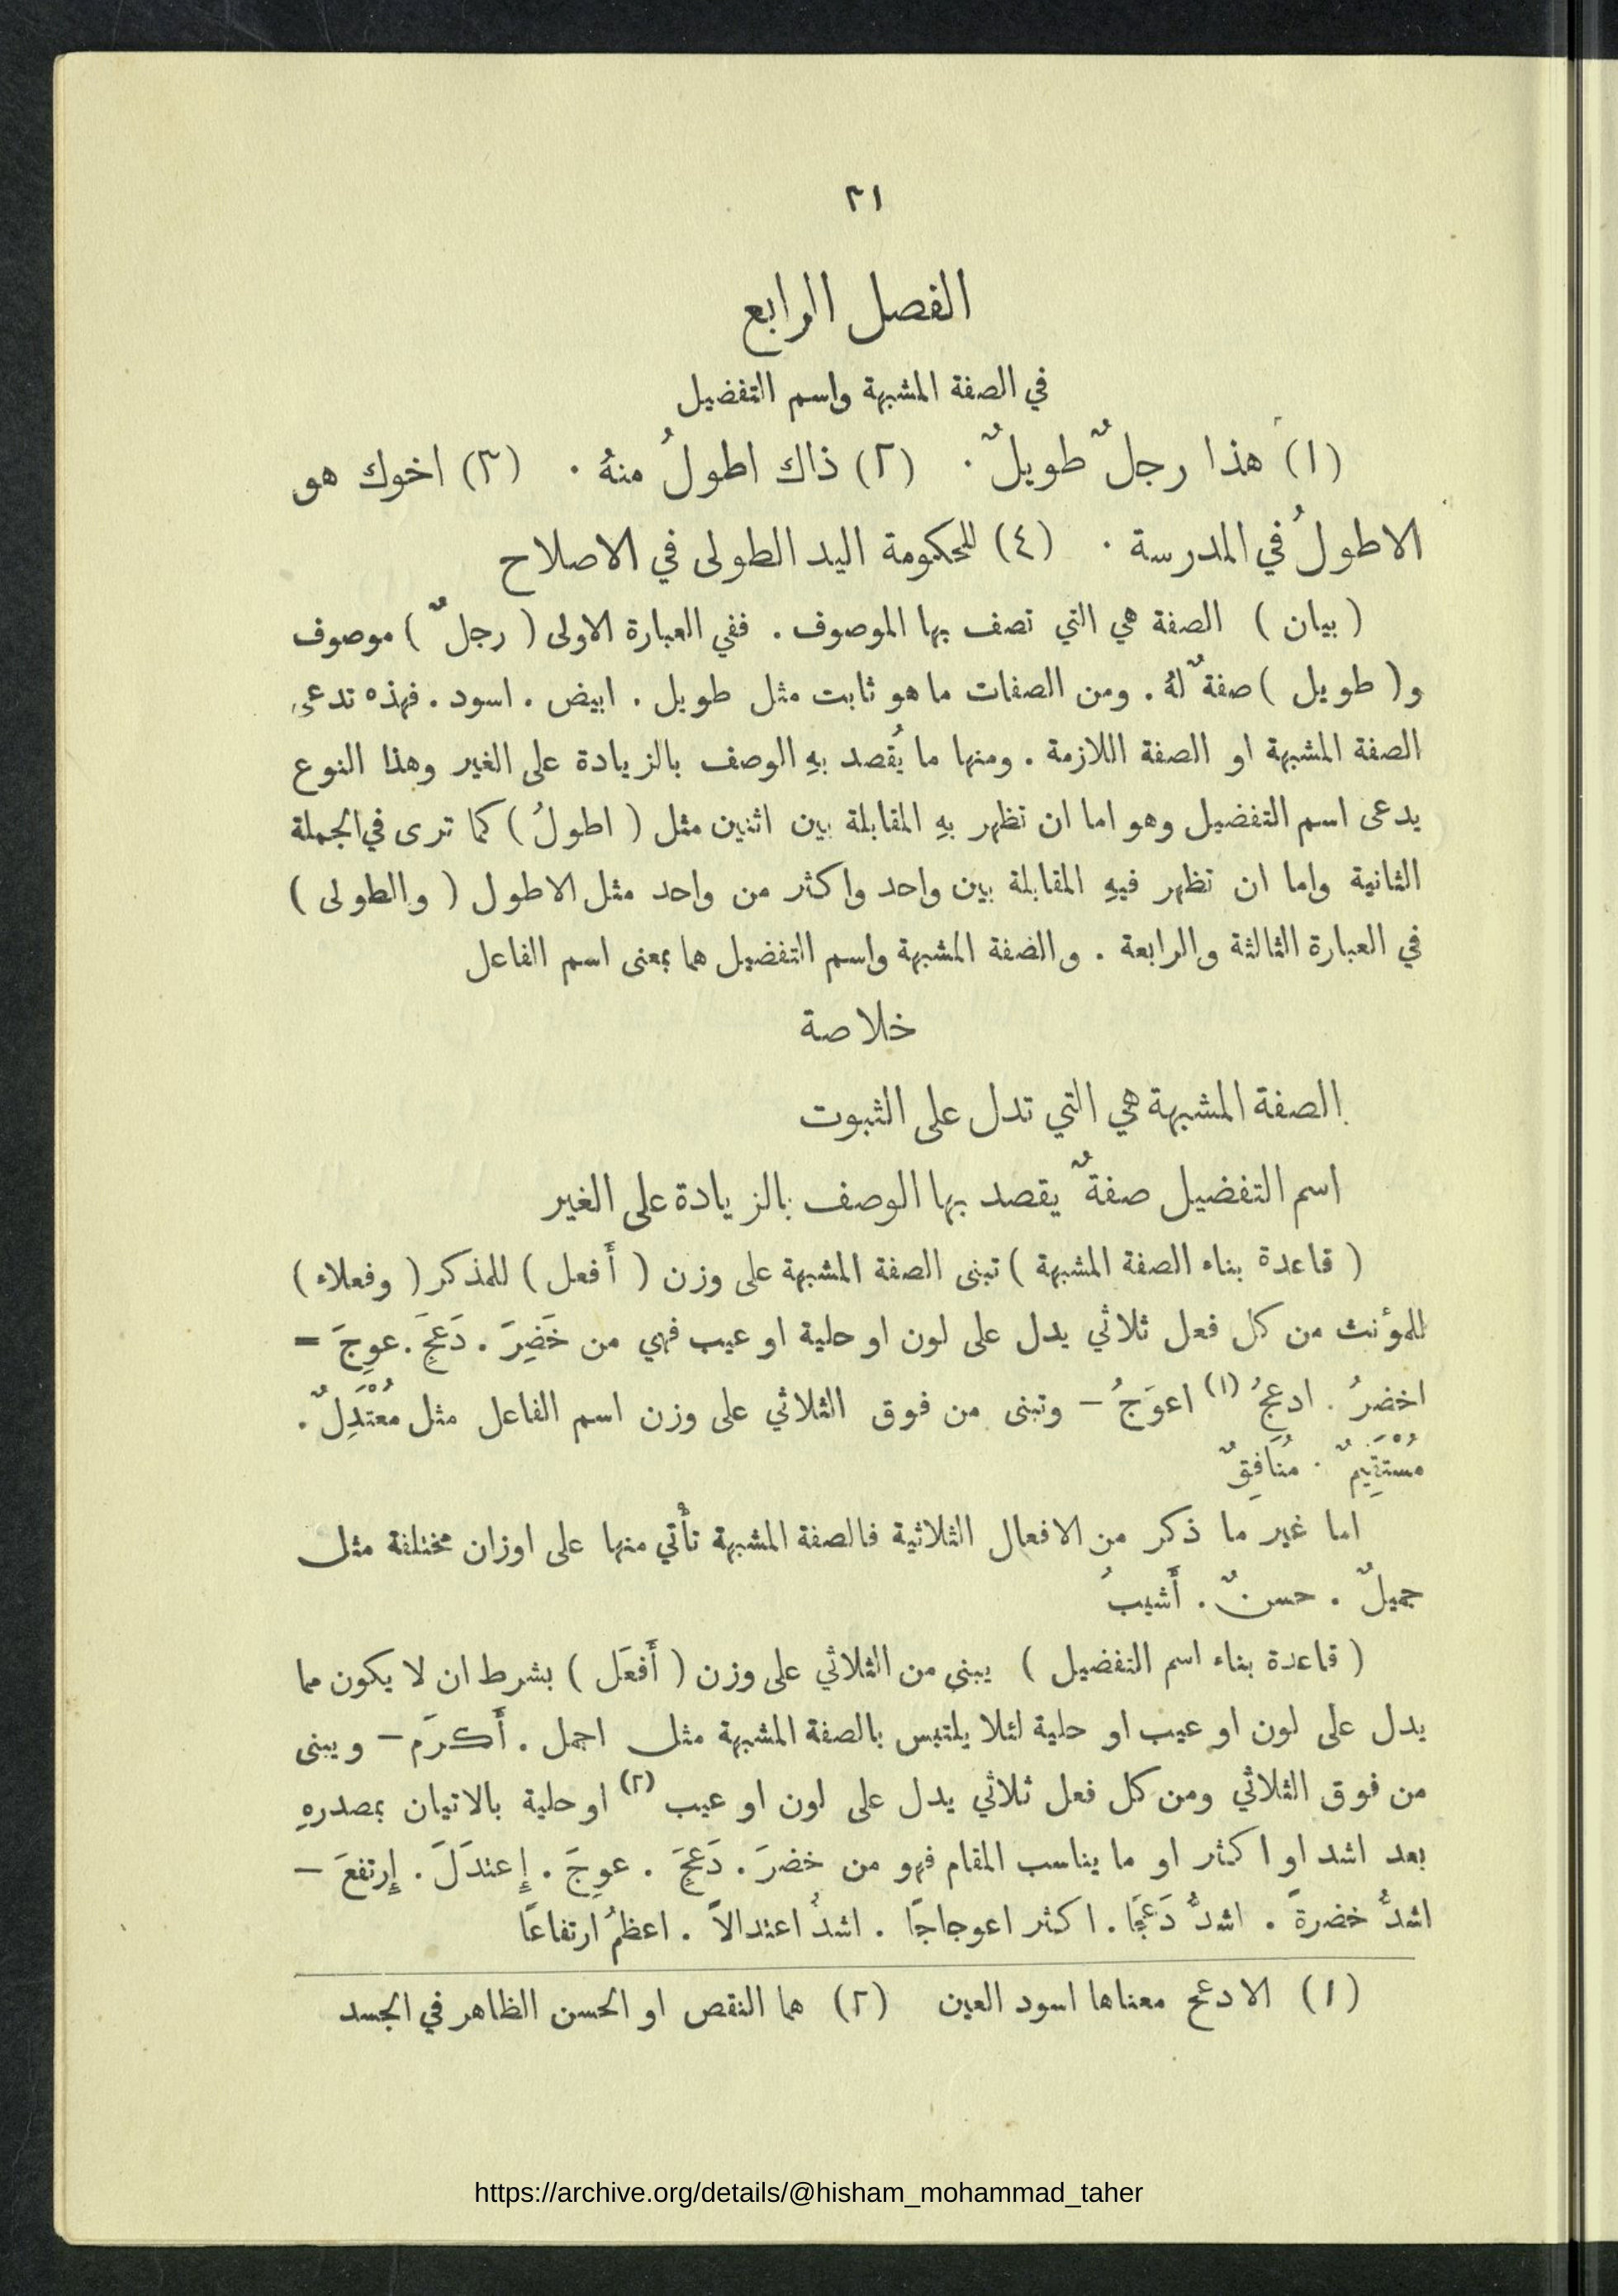 ٢١
الفصل الرابع
في الصفة المشبهة واسم التفضيل
(١) هذا رجلٌ طويلٌ . (٢) ذاك اطولُ منهُ . (٣) اخوك هو
الاطولُ في المدرسة . (٤) للحكومة اليد الطولى في الاصلاح
( بيان ) الصفة هي التي تصف بها الموصوف . ففي العبارة الاولى ( رجلٌ ) موصوف
و( طويل ) صفةٌ لهُ . ومن الصفات ما هو ثابت مثل طويل . ابيض . اسود . فهذه تدعى
الصفة المشبهة او الصفة اللازمة . ومنها ما يُقصد بهِ الوصف بالزيادة على الغير وهذا النوع
يدعى اسم التفضيل وهو اما ان تظهر بهِ المقابلة بين اثنين مثل ( اطولُ ) كما ترى في الجملة
الثانية واما ان تظهر فيهِ المقابلة بين واحد واكثر من واحد مثل الاطول ( والطولى )
في العبارة الثالثة والرابعة . والضفة المشبهة واسم التفضيل هما بمعنى اسم الفاعل
خلاصة
الصفة المشبهة هي التي تدل على الثبوت
اسم التفضيل صفةٌ يقصد بها الوصف بالزيادة على الغير
( قاعدة بناء الصفة المشبهة ) تبنى الصفة المشبهة على وزن ( أَفعل ) للمذكر ( وفعلاء )
للمؤنث من كل فعل ثلاثي يدل على لون او حلية او عيب فهي من خَضِرَ . دَعِجَ . عوِجَ =
اخضرُ . ادعجُ (١) اعوَجُ – وتبنى من فوق الثلاثي على وزن اسم الفاعل مثل مُعْتَدِلٌ .
مُسْتَقِيمٌ . مُنَافِقٌ
اما غير ما ذكر من الافعال الثلاثية فالصفة المشبهة تأْتي منها على اوزان مختلفة مثل
جميلٌ . حسنٌ . أَشيبُ
( قاعدة بناء اسم التفضيل ) يبنى من الثلاثي على وزن ( أَفعَل ) بشرط ان لا يكون مما
يدل على لون او عيب او حلية لئلا يلتبس بالصفة المشبهة مثل اجمل . أَكرَم – ويبنى
من فوق الثلاثي ومن كل فعل ثلاثي يدل على لون او عيب (٢) او حلية بالاتيان بمصدرهِ
بعد اشد او اكثر او ما يناسب المقام فهو من خضرَ . دَعِجَ . عوِجَ . إِعتدَلَ . إِرتفعَ –
اشدُّ خضرةً . اشدُّ دَعَجًا . اكثر اعوجاجًا . اشدُّ اعتدالاً . اعظمُ ارتفاعًا
(١) الادعج معناها اسود العين (٢) هما النقص او الحسن الظاهر في الجسد
https://archive.org/details/@hisham_mohammad_taher